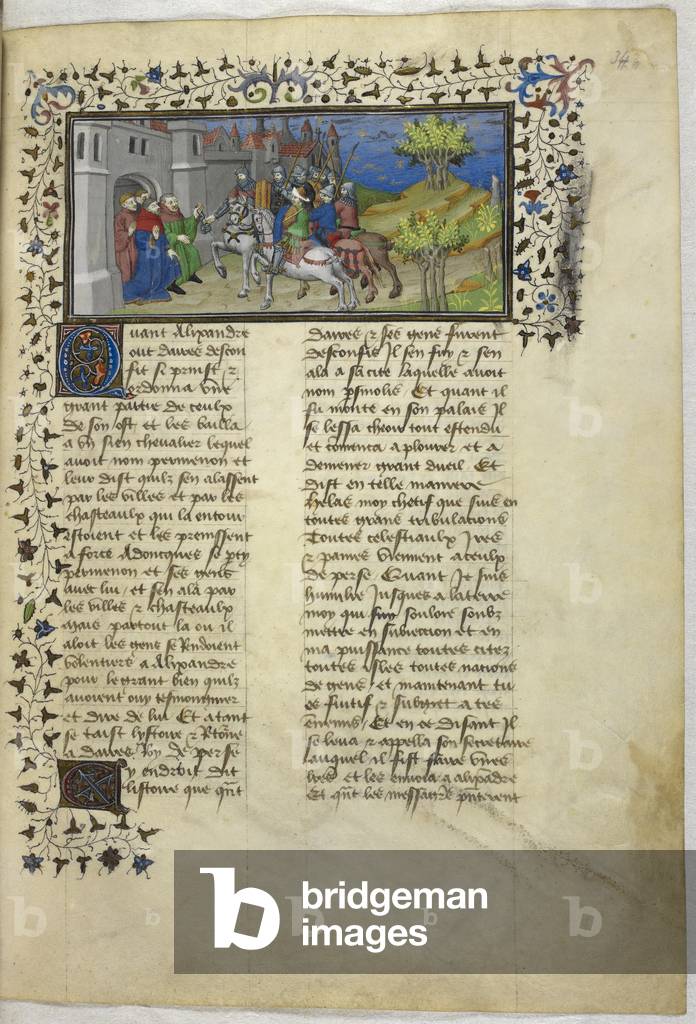 34
Quant Alixandre
out daires descon
fit Il prinst &
ordonna une
grant partie de ceulx
de son ost et les bailla
a un sien chevalier lequel
avoit nom permenon et
leur dist quilz sen alassent
par les villes et par les
chasteaulx qui la entour
estoient et les preinssent
a force Adoncques se pty
permenon et ses gens
avec lui / et sen ala par
les villes & chasteaulx
Mais partout la ou il
aloit les gens se Rendoient
volentiers a Alixandre
pour le grant bien quilz
avoient ouy tesmongner
et dire de lui Et a tant
se taist lystoire & Rtorne
a daires Roy de perse
Cy endroit dit
listoire que qnt
daires & ses gens furent
desconfis Il sen fuy & sen
ala a sa cite laquelle avoit
nom Et quant il
fu monte en son palais Il
se lessa cheoir tout estendu
et comenca a plourer et a
demener grant dueil Et
dist en telle maniere
helas moy chetif que suis en
toutes grans tribulations
Toutes celestiaulx Ires
& paines viennent a ceulx
de perse / Quant Je suis
humble Jusques a la terre
moy qui souloie soubz
mettre en subieccion et en
ma puissance toutes citez
toutes isles toutes nations
de gens / et maintenant tu
es fuitif & subget a tes
ennemis / Et en ce disant Il
se leva & appella son secretaire
auquel il fist faire unes
lres et les envoia a alixadre
Et qnt les messagrs pnterent
bridgeman
images